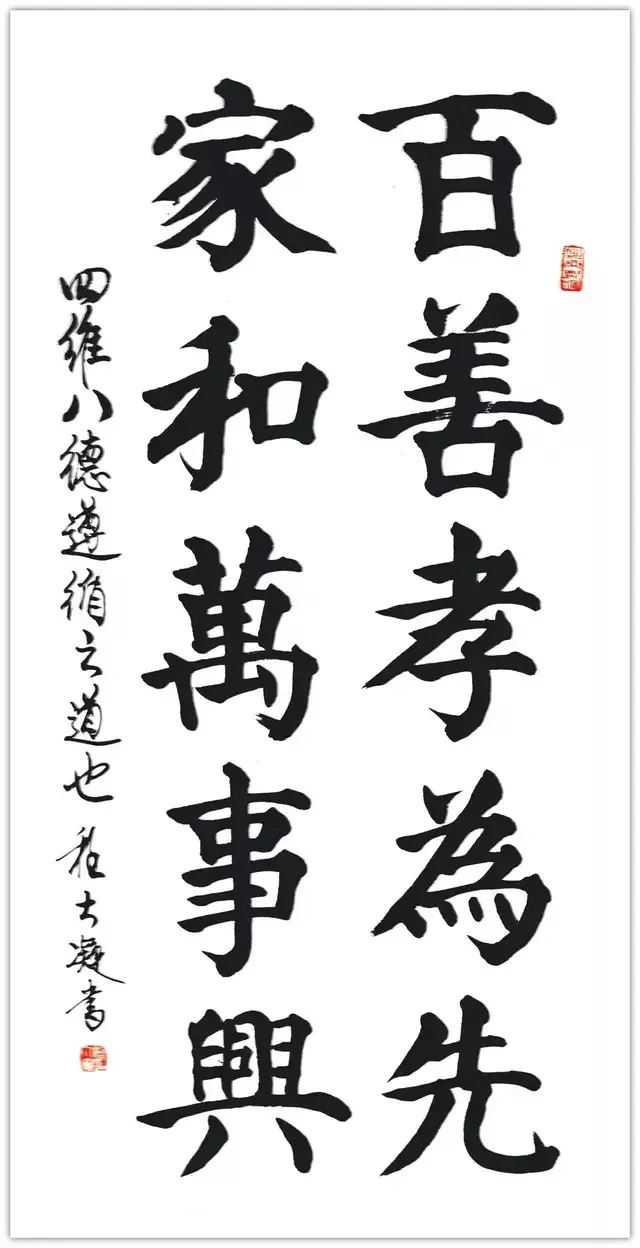 百善孝為先
家和萬事興
四維八德遵循之道也 程大凝書